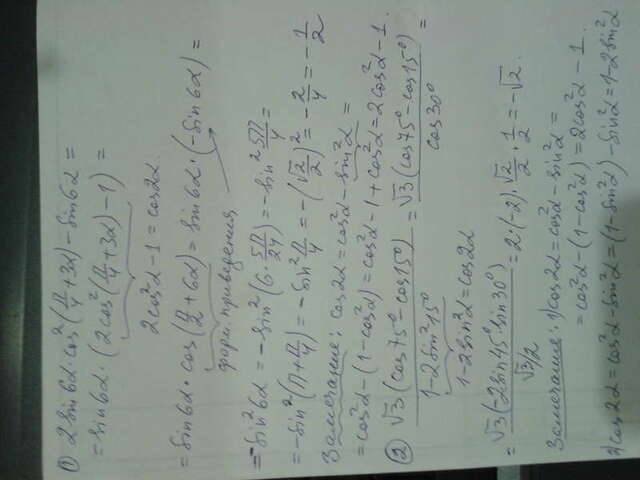 ① 2 sin6α · cos²(π/4 + 3α) - sin6α =
= sin6α · (2cos²(π/4 + 3α) - 1) =
2cos²α - 1 = cos2α
= sin6α · cos(π/2 + 6α) = sin6α · (-sin6α) =
форм. приведения
= -sin²6α = -sin²(6 · 5π/24) = -sin² 5π/4 =
= -sin²(π + π/4) = -sin² π/4 = -(√2/2)² = -2/4 = -1/2
Замечание: cos2α = cos²α - sin²α =
= cos²α - (1 - cos²α) = cos²α - 1 + cos²α = 2cos²α - 1.
② √3(cos75° - cos15°) / 1 - 2sin²15° = √3(cos75° - cos15°) / cos30° =
1 - 2sin²α = cos2α
= √3(-2sin45° sin30°) / √3/2 = 2 · (-2) · √2/2 · 1/2 = -√2.
Замечание: 1) cos2α = cos²α - sin²α =
= cos²α - (1 - cos²α) = 2cos²α - 1.
2) cos2α = cos²α - sin²α = (1 - sin²α) - sin²α = 1 - 2sin²α